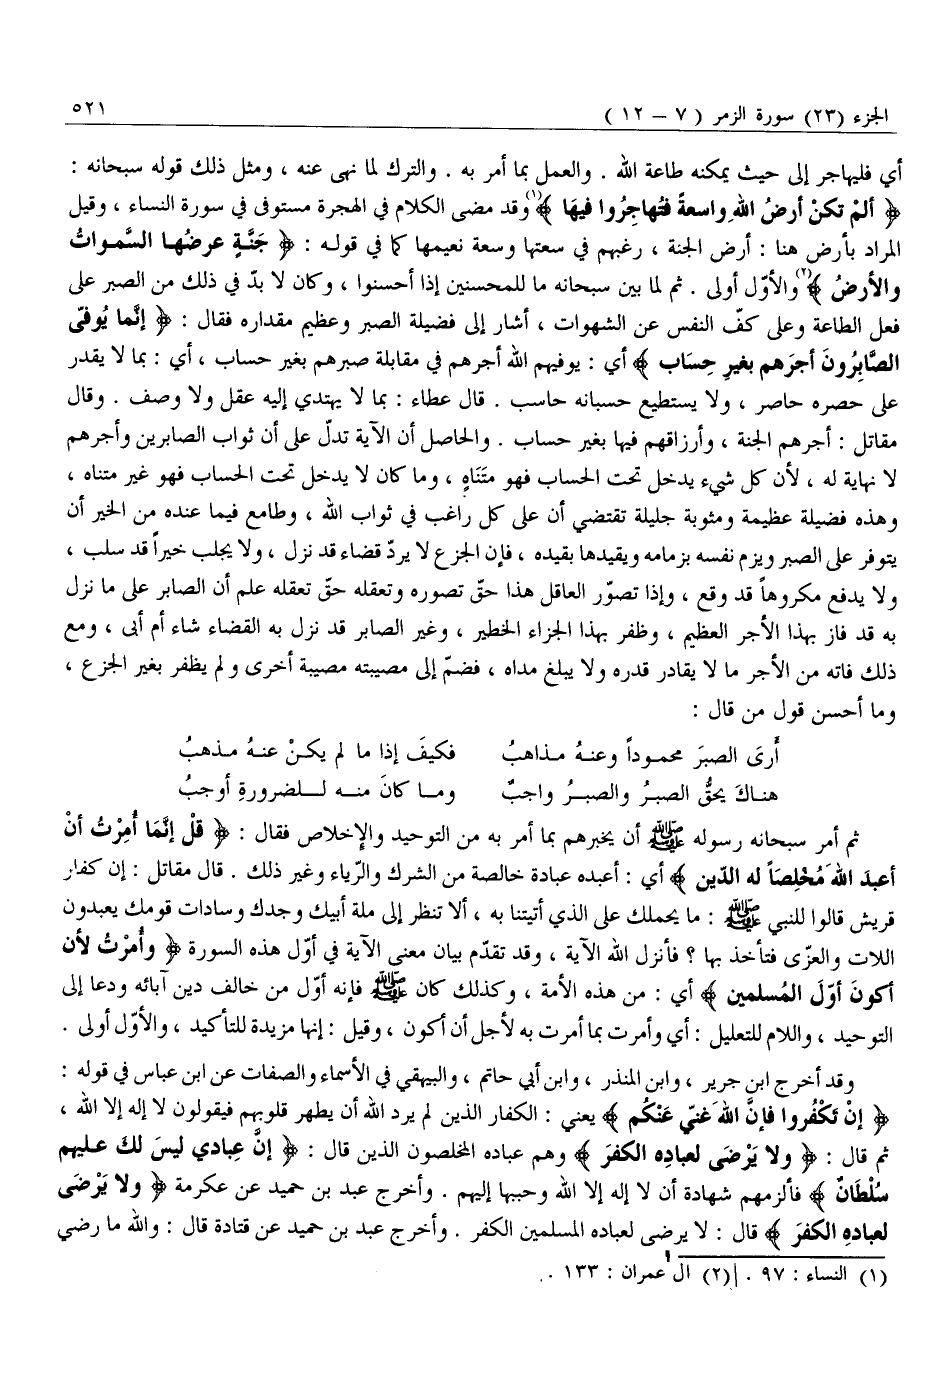 الجزء (٢٣) سورة الزمر ( ٧ – ١٢ ) ٥٢١
أي فليهاجر إلى حيث يمكنه طاعة الله . والعمل بما أمر به . والترك لما نهى عنه ، ومثل ذلك قوله سبحانه :
﴿ ألمْ تكنْ أرضُ الله واسعةً فتُهاجِرُوا فيهَا ﴾(١) وقد مضى الكلام في الهجرة مستوفى في سورة النساء ، وقيل
المراد بأرض هنا : أرض الجنة ، رغبهم في سعتها وسعة نعيمها كما في قولـه : ﴿ جَنَّةٍ عرضُها السَّمواتُ
والأرضُ ﴾(٢) والأوّل أولى . ثم لما بين سبحانه ما للمحسنين إذا أحسنوا ، وكان لا بدّ في ذلك من الصبر على
فعل الطاعة وعلى كفّ النفس عن الشهوات ، أشار إلى فضيلة الصبر وعظيم مقداره فقال : ﴿ إنَّما يُوفى
الصَّابِرُونَ أجرَهم بغيرِ حِسَاب ﴾ أي : يوفيهم الله أجرهم في مقابلة صبرهم بغير حساب ، أي : بما لا يقدر
على حصره حاصر ، ولا يستطيع حسبانه حاسب . قال عطاء : بما لا يهتدي إليه عقل ولا وصف . وقال
مقاتل : أجرهم الجنة ، وأرزاقهم فيها بغير حساب . والحاصل أن الآية تدلّ على أن ثواب الصابرين وأجرهم
لا نهاية له ، لأن كل شيء يدخل تحت الحساب فهو متَنَاهٍ ، وما كان لا يدخل تحت الحساب فهو غير متناه ،
وهذه فضيلة عظيمة ومثوبة جليلة تقتضي أن على كل راغب في ثواب الله ، وطامع فيما عنده من الخير أن
يتوفر على الصبر ويزم نفسه بزمامه ويقيدها بقيده ، فإن الجزع لا يردّ قضاء قد نزل ، ولا يجلب خيراً قد سلب ،
ولا يدفع مكروهاً قد وقع ، وإذا تصوّر العاقل هذا حقّ تصوره وتعقله حقّ تعقله علم أن الصابر على ما نزل
به قد فاز بهذا الأجر العظيم ، وظفر بهذا الجزاء الخطير ، وغير الصابر قد نزل به القضاء شاء أم أبى ، ومع
ذلك فاته من الأجر ما لا يقادر قدره ولا يبلغ مداه ، فضمّ إلى مصيبته مصيبة أخرى ولم يظفر بغير الجزع ،
وما أحسن قول من قال :
أَرى الصبرَ محموداً وعنهُ مـذاهبُ فكيفَ إذا ما لم يكـنْ عنهُ مـذهبُ
هناكَ يحقُّ الصبـرُ والصبـرُ واجبٌ ومـا كانَ منـه لـلضرورةِ أوجبُ
ثم أمر سبحانه رسوله ﷺ أن يخبرهم بما أمر به من التوحيد والإخلاص فقال : ﴿ قلْ إنَّمَا أُمِرْتُ أنْ
أعبدَ اللهَ مُخْلِصَاً له الدّين ﴾ أي : أعبده عبادة خالصة من الشرك والرّياء وغير ذلك . قال مقاتل : إن كفار
قريش قالوا للنبي ﷺ : ما يحملك على الذي أتيتنا به ، ألا تنظر إلى ملة أبيك وجدك وسادات قومك يعبدون
اللات والعزّى فتأخذ بها ؟ فأنزل الله الآية ، وقد تقدّم بيان معنى الآية في أوّل هذه السورة ﴿ وأُمرْتُ لأن
أكونَ أوّلَ المُسلمين ﴾ أي : من هذه الأمة ، وكذلك كان ﷺ فإنه أوّل من خالف دين آبائه ودعا إلى
التوحيد ، واللام للتعليل : أي وأمرت بما أمرت به لأجل أن أكون ، وقيل : إنها مزيدة للتأكيد ، والأوّل أولى .
وقد أخرج ابن جرير ، وابن المنذر ، وابن أبي حاتم ، والبيهقي في الأسماء والصفات عن ابن عباس في قوله :
﴿ إنْ تكْفُروا فإنَّ اللهَ غنيّ عَنْكُم ﴾ يعني : الكفار الذين لم يرد الله أن يطهر قلوبهم فيقولون لا إله إلا الله ،
ثم قال : ﴿ ولا يَرْضى لعبادِه الكفرَ ﴾ وهم عباده المخلصون الذين قال : ﴿ إنَّ عِبادي ليسَ لكَ عـليهم
سُلْطَانٌ ﴾ فألزمهم شهادة أن لا إله إلا الله وحببها إليهم . وأخرج عبد بن حميد عن عكرمة ﴿ ولا يَرْضَى
لعبادهِ الكفرَ ﴾ قال : لا يرضى لعباده المسلمين الكفر . وأخرج عبد بن حميد عن قتادة قال : والله ما رضي
(١) النساء : ٩٧ . (٢) آل عمران : ١٣٣ .